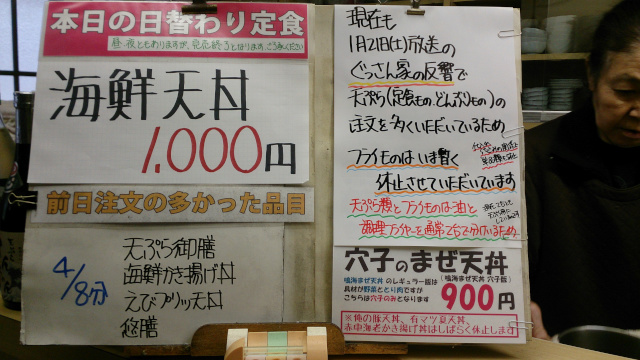 本日の日替わり定食
昼・夜ともありますが、完売終了となります。ご了承ください
海鮮天丼
1,000円
前日注文の多かった品目
4/8分
天ぷら御膳
海鮮かき揚げ丼
えびプリッツ天丼
悠膳
現在も
1月21日(土)放送の
ぐっさん家の反響で
天ぷら(定食もの、どんぶりもの)の
注文を多くいただいているため
フライものはいま暫く
休止させていただいています
天ぷら類とフライものは油と
調理フライヤーを通常2台で分けているため
穴子のまぜ天丼
鳴海まぜ天丼 のレギュラー版は
具材が野菜ととり肉ですが
こちらは穴子のみとなります
(鳴海まぜ天丼 穴子版)
900円
※俺の豚天丼、有マツ夏天丼、
赤車海老かき揚げ丼はしばらく休止します